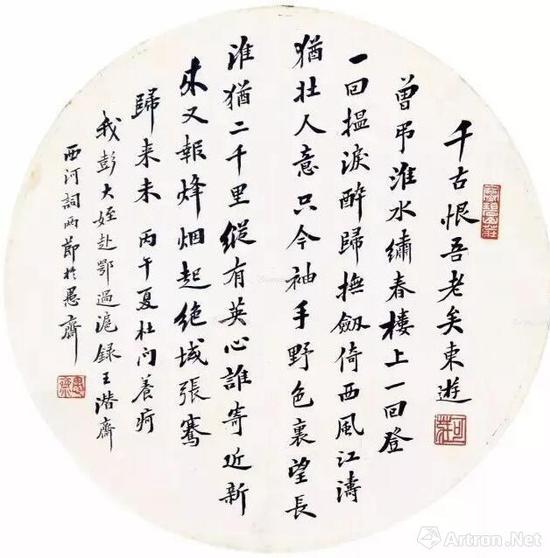 千古恨吾老矣東遊
曾弔淮水繡春樓上一回登
一回揾淚醉歸撫劔倚西風江濤
猶壯人意只今袖手野色裏望長
淮猶二千里縱有英心誰寄近新
来又報烽烟起絶域張騫
歸来未 丙午夏杜门養疴
我彭大姪赴鄂過滬録王潛齋
西河詞兩節於愚齋
愚齋
Artron.Net